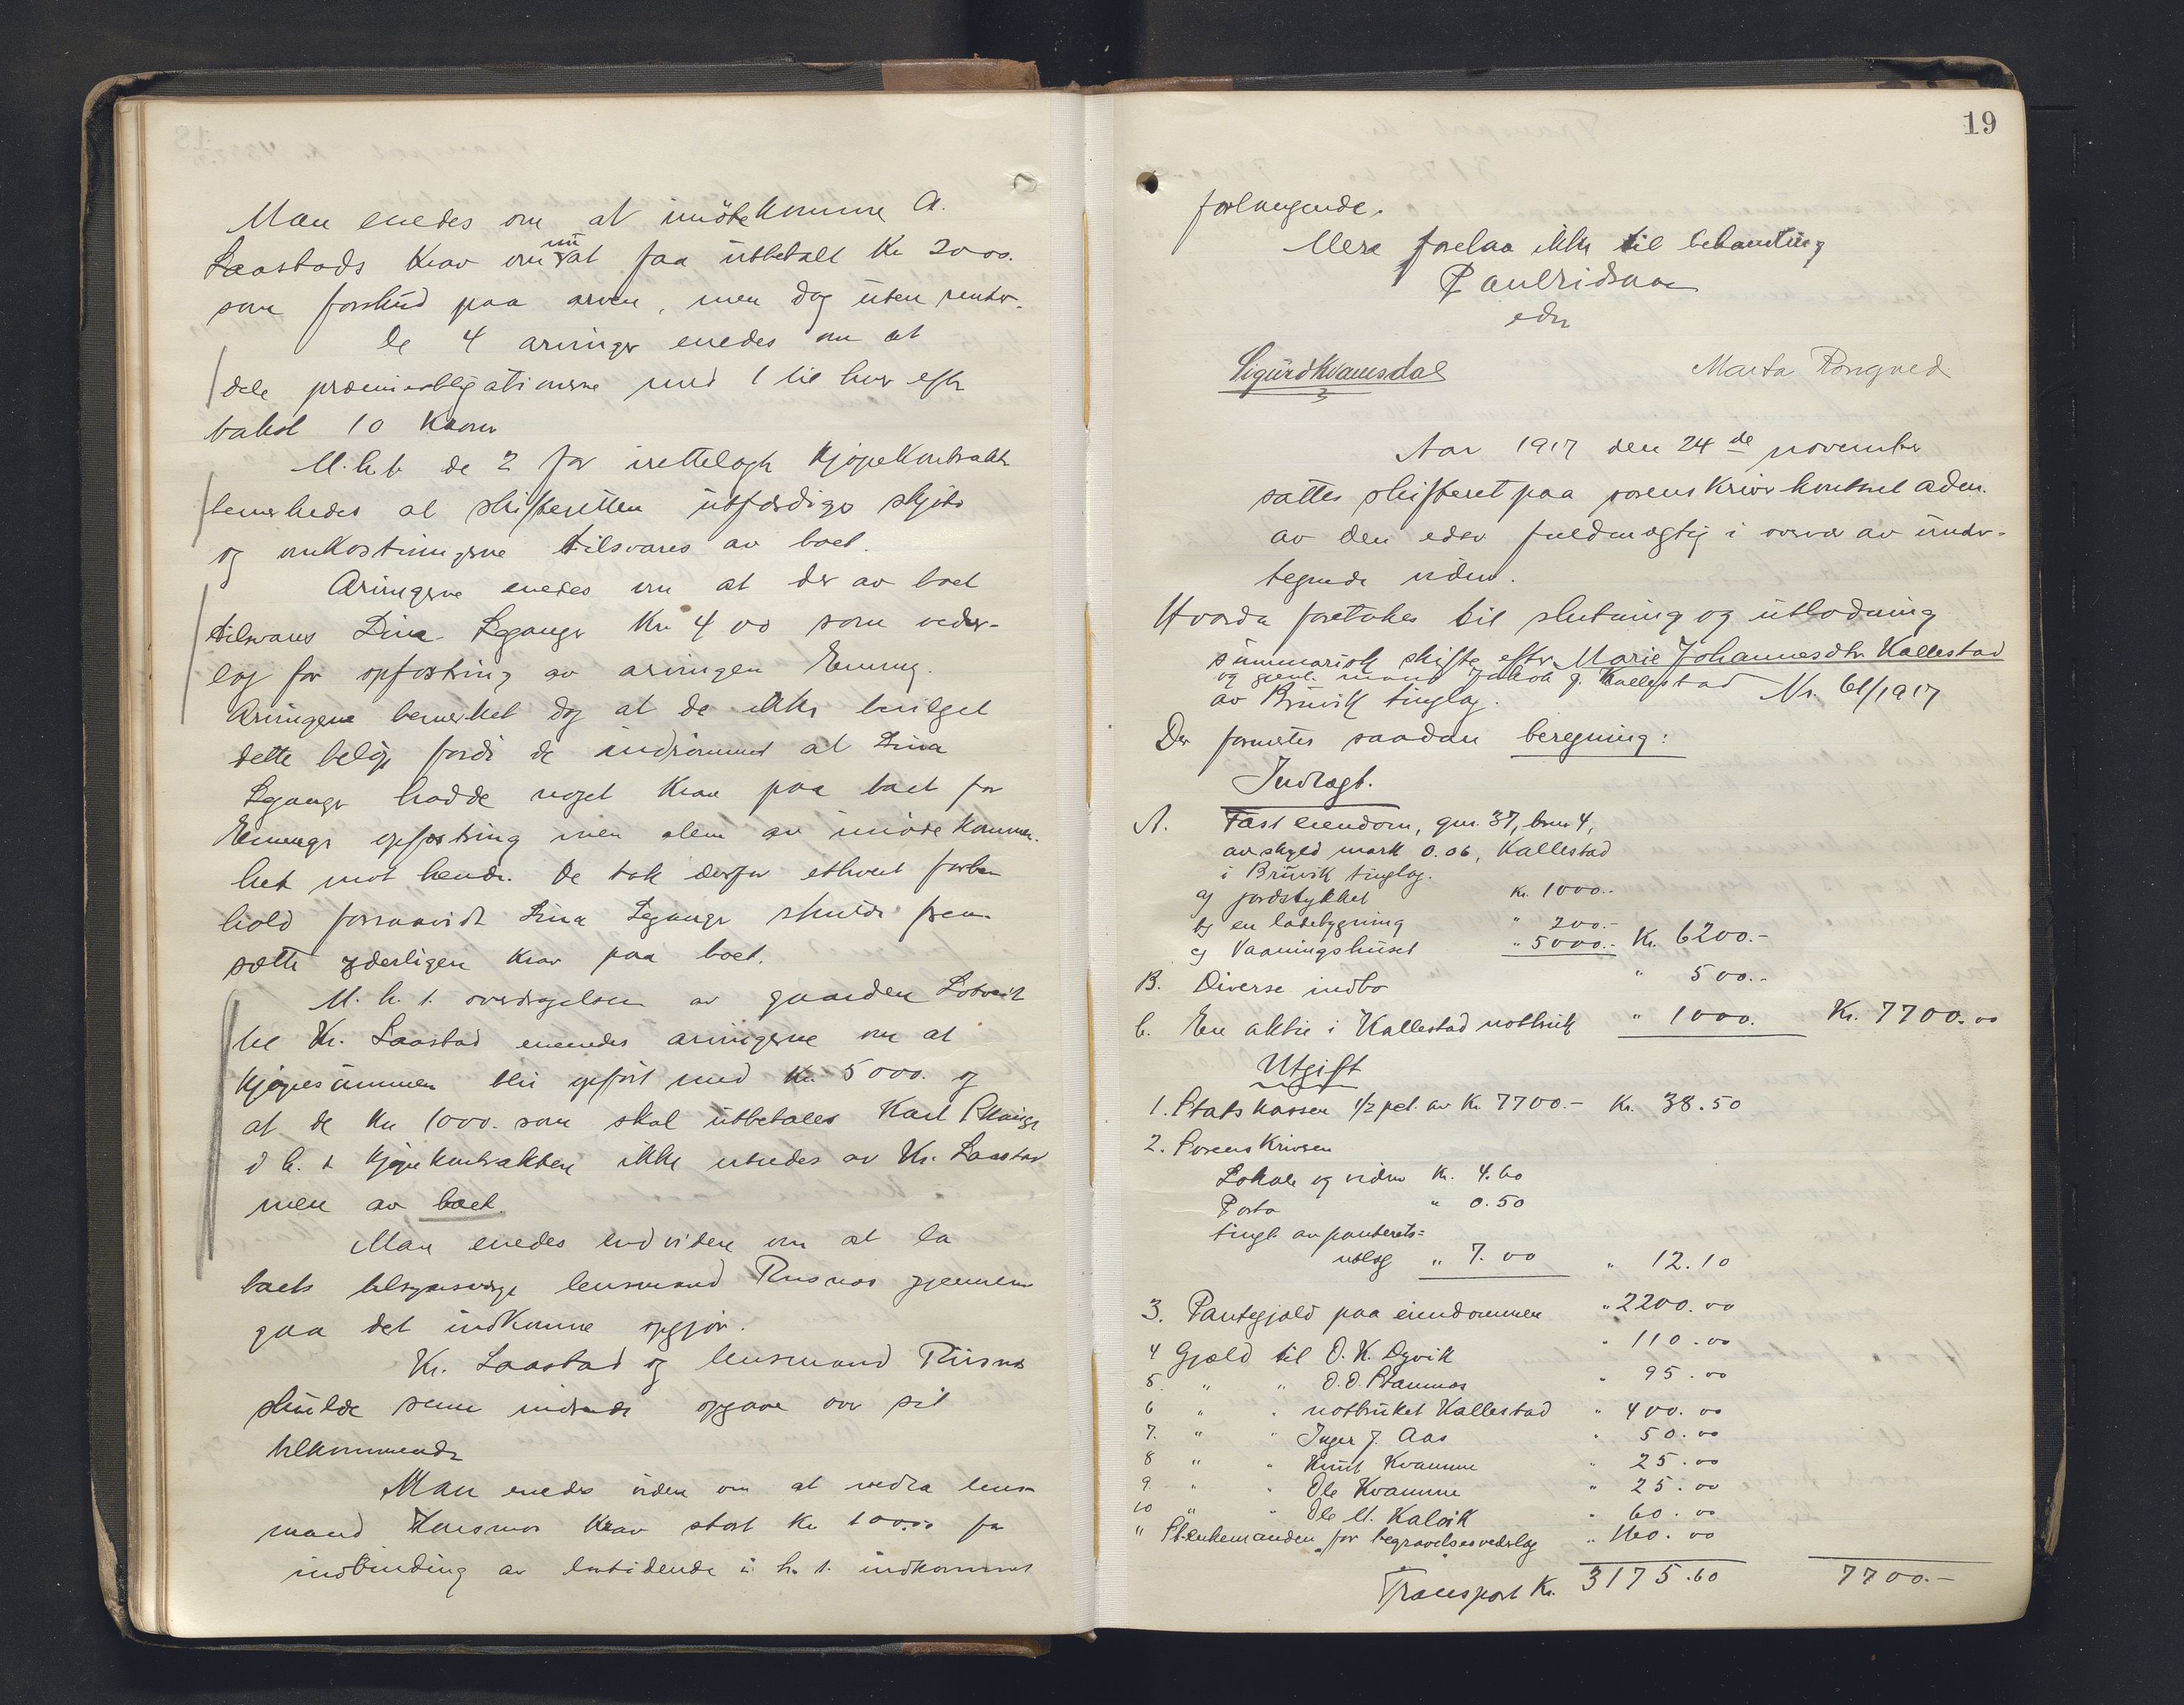 Man enedes om at imøtekomme A.
Laastads krav om nu at faa utbetalt Kr 2000.
som forskud paa arven, men dog uten renter.
De 4 arvinger enedes om at
dele præmieobligationerne med 1 til hver efter
takst 10 kroner
M.h.t. de 2 før irettelagte kjøpekontrakter
bemerkedes at skifteretten utfærdiger skjøte
og omkostningerne tilsvares av boet.
Arvingerne enedes om at der av boet
tilsvares Lina Leganger Kr 400 som veder-
lag for opfostring av arvingen Emmy.
Arvingerne bemerket dog at de ikke bevilget
dette beløp fordi de indrømmet at Lina
Leganger hadde noget krav paa boet for
Emmys opfostring men alene av imøtekommen-
het mot hende. De tok derfor ethvert forbe-
hold forsaavidt Lina Leganger skulde frem-
sætte yderligere krav paa boet.
M.h.t. overdragelsen av gaarden
til Kr. Laastad enedes arvingerne om at
kjøpesummen blir opført med Kr. 5000. og
at de Kr 1000. som skal utbetales Karl
i h.t. kjøpekontrakten ikke utredes av Kr. Laastad
men av boet.
Man enedes endvidere om at la
boets tilsynsverge lensmand Risnes gjennem-
gaa det indkomne opgjør.
Kr. Laastad og lensmand Risnes
skulde senere indsende opgave over sit
tilkommende
Man enedes videre om at vedta lens-
mand krav stort Kr 10.00 for
indbinding av i h.t. indkommet
19
forlangende.
Mere forelaa ikke til behandling
P Lauridsen
edsv
Sigurd Kvamsdal
Marta Rongved
Aar 1917 den 24de november
sattes skifteret paa sorenskriverkontoret adm.
av den edsv fuldmægtig i overvær av under-
tegnede vidner.
Hvorda foretokes til slutning og utlodning
summarisk skifte efter Marie Johannesdtr. Kallestad
og gjenl. mand Jakob J. Kallestad Nr. 61/1917
av Bruvik tinglag.
Der formertes saadan beregning:
Indtægt.
A. Fast eiendom, gnr. 37, bnr 4,
av skyld mark 0.06, Kallestad
i Bruvik tinglag.
a) jordstykket Kr. 1000.-
b) en ladebygning " 200.-
c) Vaaningshuset " 5000.- Kr. 6200.-
B. Diverse indbo " 500.-
C. En aktie i Kallestad notbruk " 1000. Kr. 7700.00
Utgift
1. Statskassen 1/2 pct. av Kr. 7700.- Kr. 38.50
2. Sorenskriveren
Lokale og vidner Kr. 4.60
Porto " 0.50
tingl. av panterets=
utlæg " 7.00 " 12.10
3. Pantegjæld paa eiendommen " 2200.00
4 Gjæld til O. K. Dyvik " 110.00
5. " " O. O. Stamnes " 95.00
6 " " notbruket Kallestad " 400.00
7. " " Inger J. Aas " 50.00
8 " " Knut Kvamme " 25.00
9 " " Ole Kvamme " 25.00
10 " " Ole M. Kalvik " 60.00
" Stenkemanden for begravelsesvederlag " 160.00
Transport Kr. 3175.60 7700.-